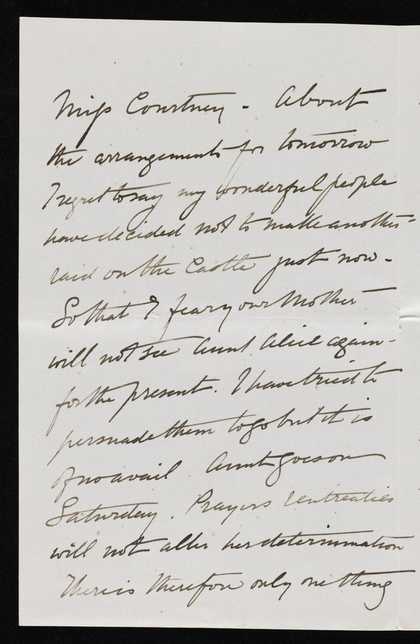 Miss Courtney - About
the arrangements for tomorrow
I regret to say my wonderful people
have decided not to make another
raid on the Castle just now -
So that I fear your Mother
will not see Aunt Alice again -
for the present. I have tried to
persuade them to go but it is
of no avail Aunt goes on
Saturday. Prayers & entreaties
will not alter her determination
There is therefore only one thing